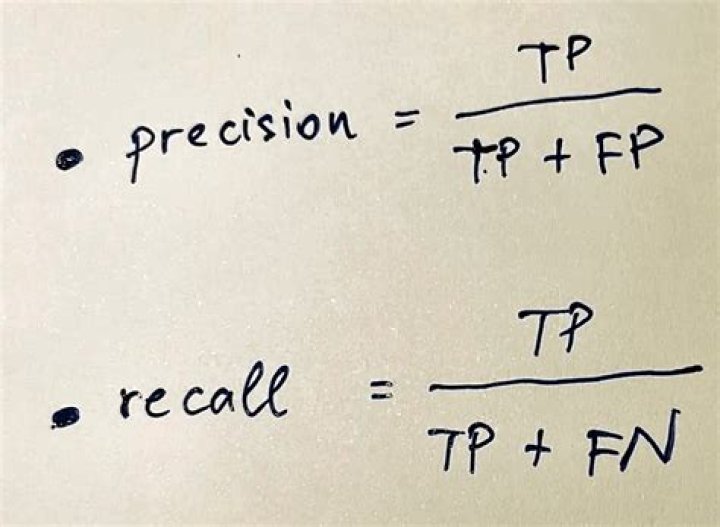 TP
• precision = ―――
TP + FP
TP
• recall = ―――
TP + FN